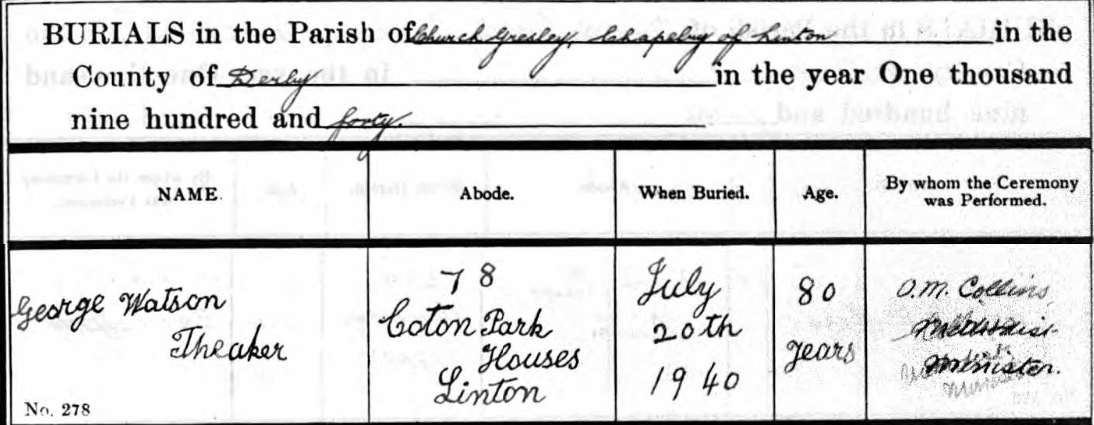 BURIALS in the Parish of Church Gresley, Chapelry of Linton in the
County of Derby in the year One thousand
nine hundred and forty.
NAME. Abode. When Buried. Age. By whom the Ceremony was Performed.
George Watson
Theaker
78
Coton Park
Houses
Linton
July
20th
1940
80
years
O.M. Collins,
Methodist
Minister.
No. 278